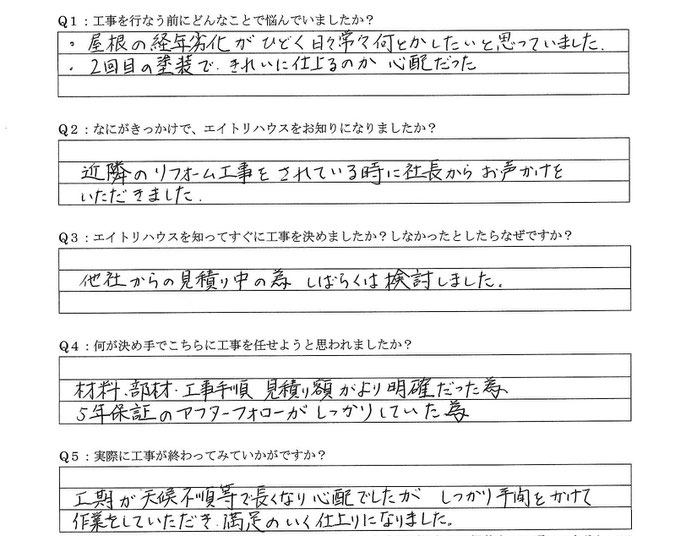 Q1：工事を行なう前にどんなことで悩んでいましたか？
・屋根の経年劣化がひどく日々常々何とかしたいと思っていました.
・2回目の塗装で.きれいに仕上るのか 心配だった
Q2：なにがきっかけで、エイトリハウスをお知りになりましたか？
近隣のリフォーム工事をされている時に社長からお声かけを
いただきました.
Q3：エイトリハウスを知ってすぐに工事を決めましたか？しなかったとしたらなぜですか？
他社からの見積り中の為 しばらくは検討しました.
Q4：何が決め手でこちらに工事を任せようと思われましたか？
材料.部材.工事手順 見積り額がより明確だった為
5年保証のアフターフォローがしっかりしていた為
Q5：実際に工事が終わってみていかがですか？
工期が天候不順等で長くなり心配でしたが しっかり手間をかけて
作業をしていただき.満足のいく仕上りになりました。